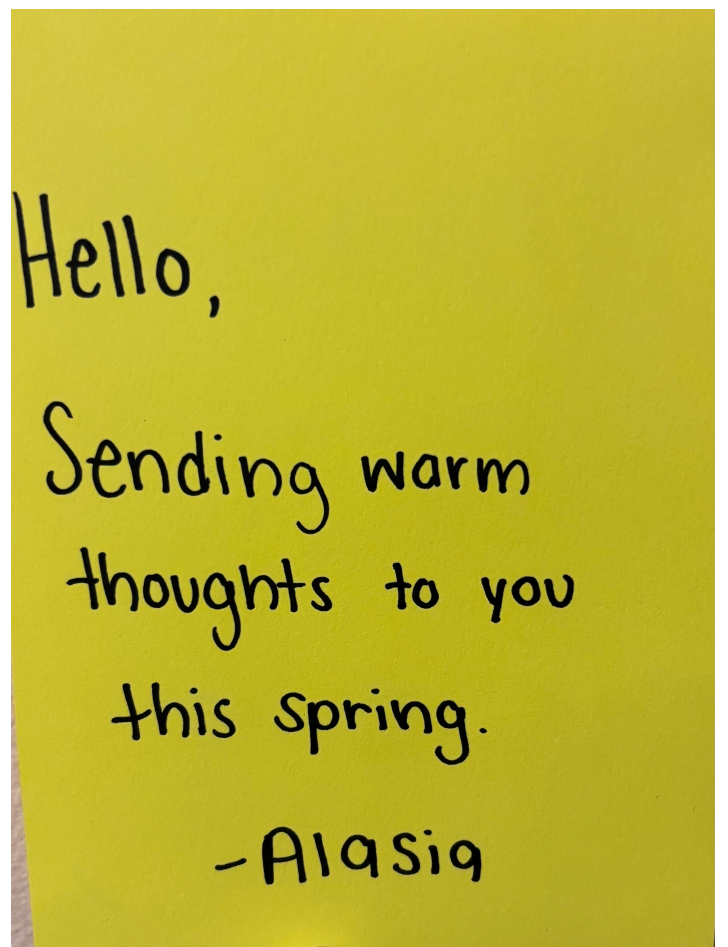 Hello,
Sending warm
thoughts to you
this spring.
-Alasia